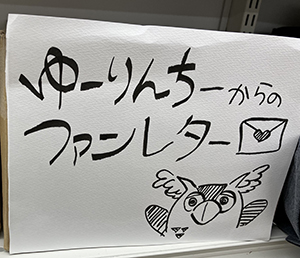 ゆーりんちーからの
ファンレター